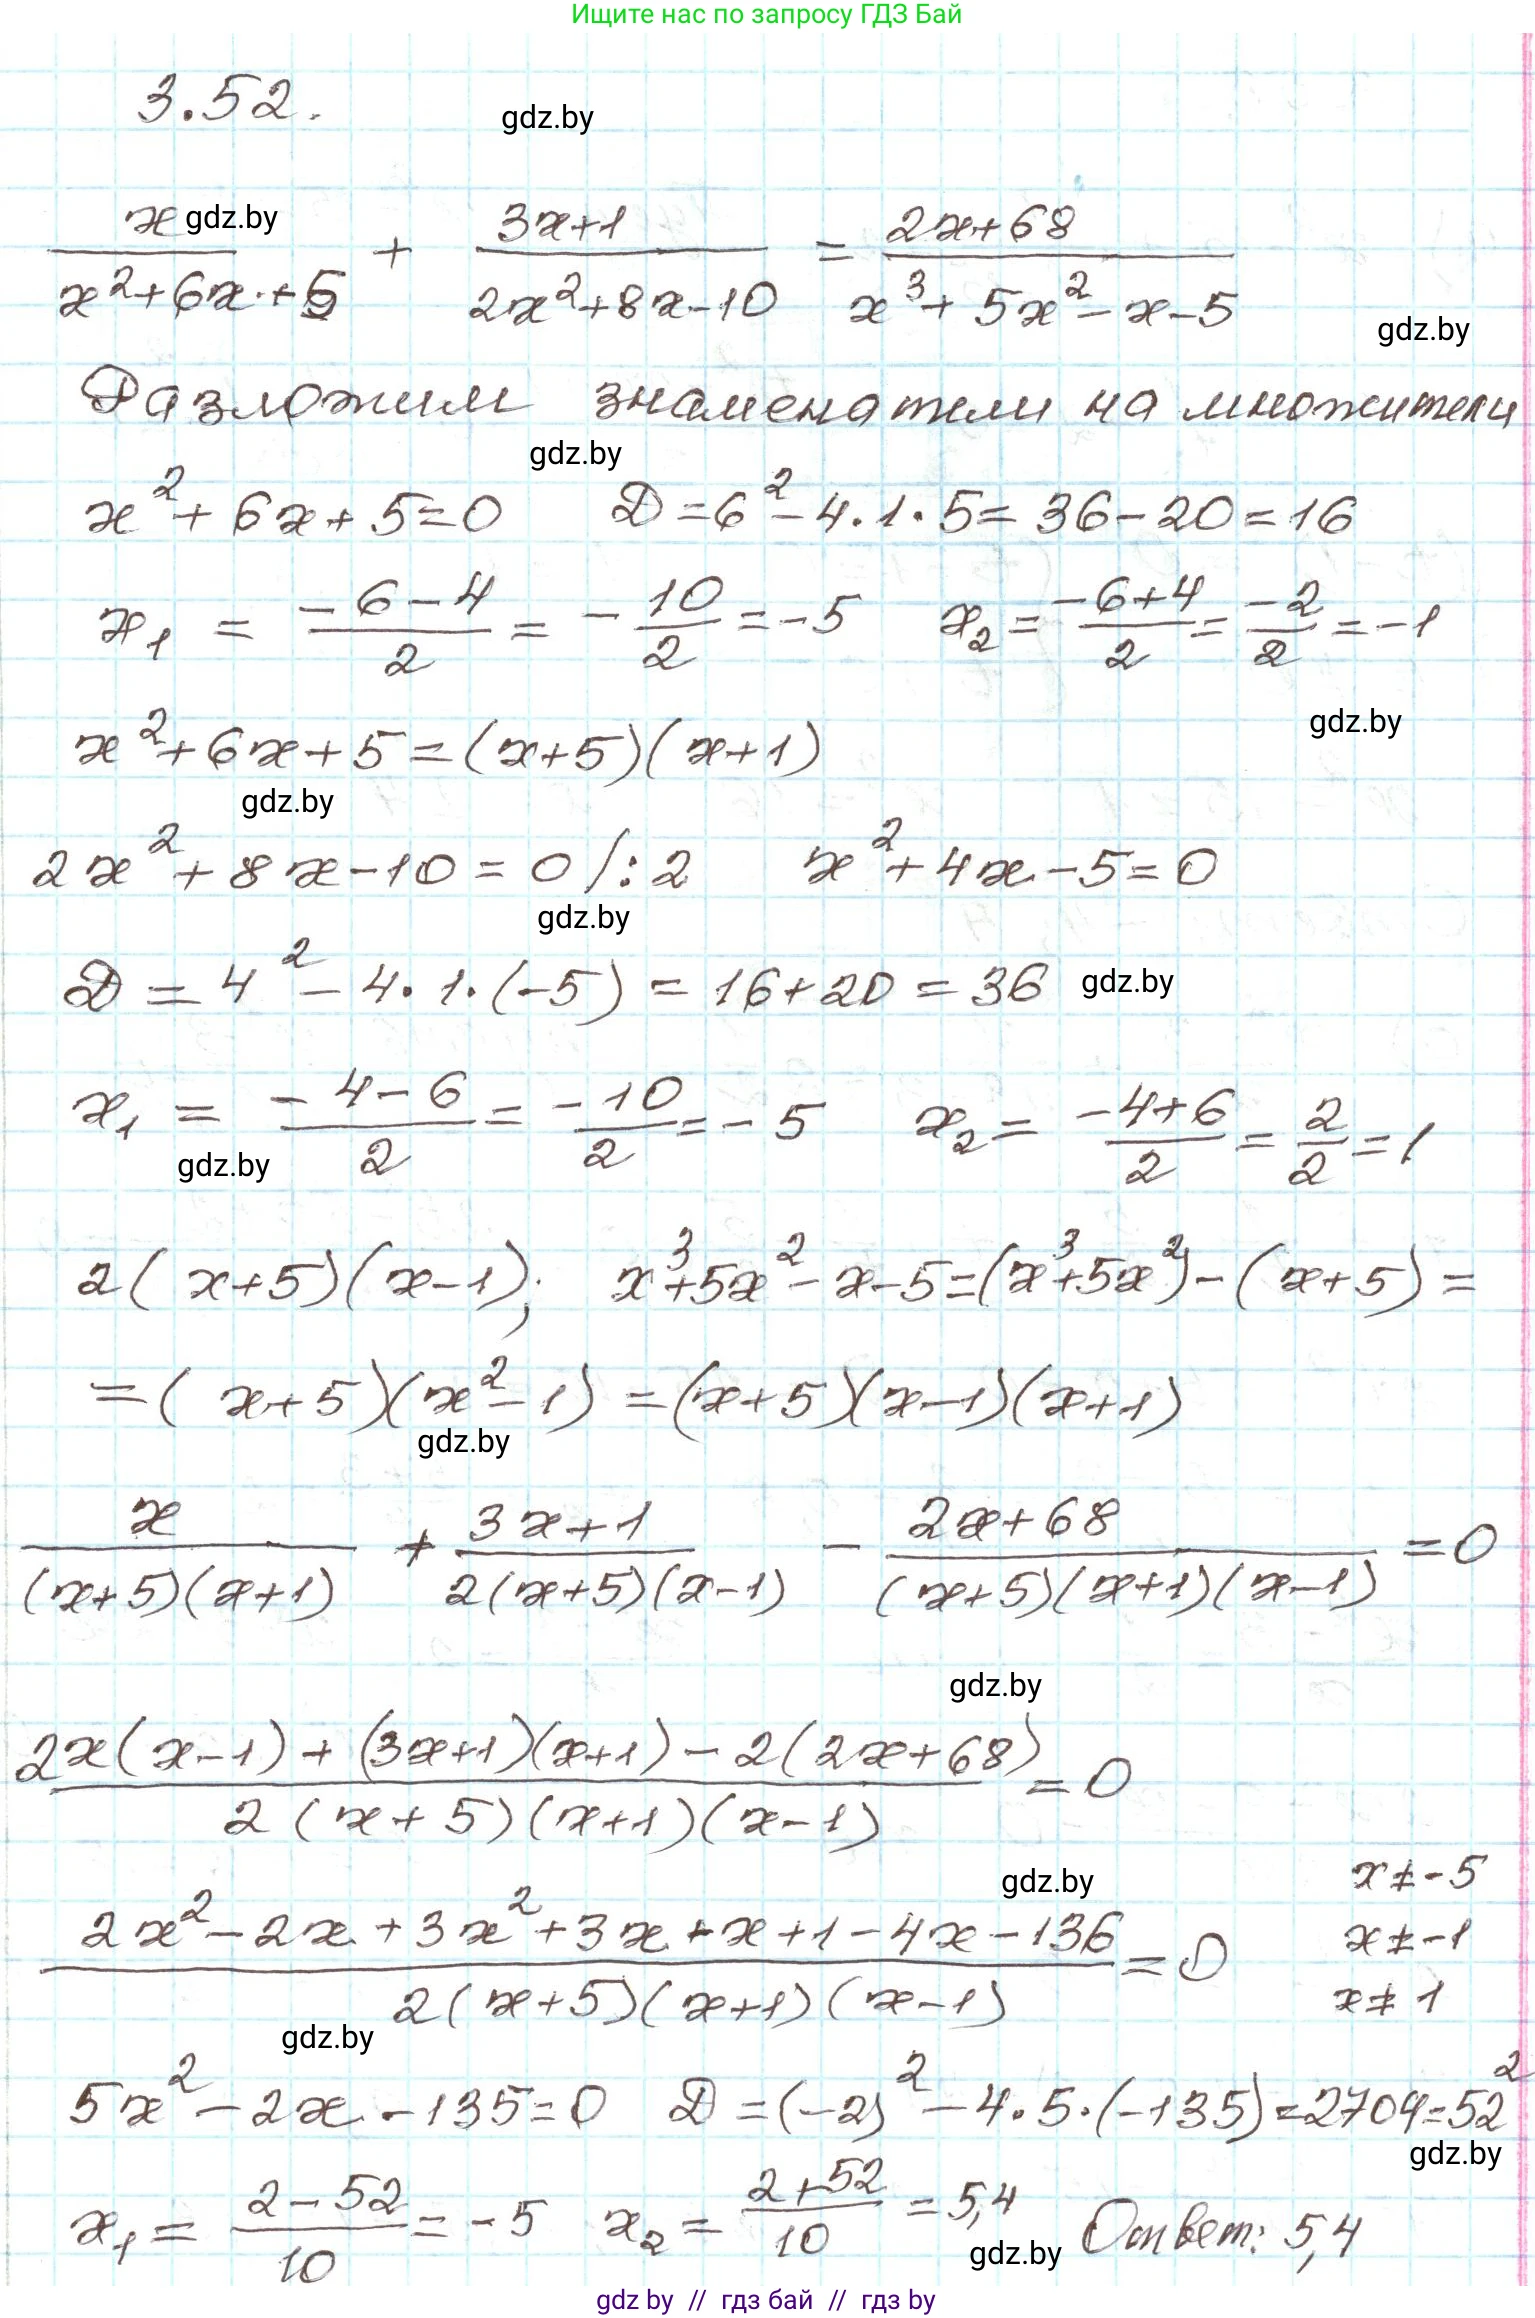 Ищите нас по запросу ГДЗ Бай
3.52.
gdz.by
x/(x²+6x+5) + (3x+1)/(2x²+8x-10) = (2x+68)/(x³+5x²-x-5)
gdz.by
gdz.by
Разложим знаменатели на множители
gdz.by
x²+6x+5=0 D=6²-4·1·5=36-20=16
x₁ = (-6-4)/2 = -10/2 = -5 x₂ = (-6+4)/2 = -2/2 = -1
gdz.by
x²+6x+5=(x+5)(x+1)
gdz.by
2x²+8x-10=0 /:2 x²+4x-5=0
gdz.by
D=4²-4·1·(-5)=16+20=36
gdz.by
x₁ = (-4-6)/2 = -10/2 = -5 x₂ = (-4+6)/2 = 2/2 = 1
gdz.by
2(x+5)(x-1); x³+5x²-x-5=(x³+5x²)-(x+5)=
=(x+5)(x²-1)=(x+5)(x-1)(x+1)
gdz.by
x/((x+5)(x+1)) + (3x+1)/(2(x+5)(x-1)) - (2x+68)/((x+5)(x+1)(x-1)) =0
gdz.by
(2x(x-1)+(3x+1)(x+1)-2(2x+68))/(2(x+5)(x+1)(x-1)) =0
gdz.by
x≠-5
(2x²-2x+3x²+3x+x+1-4x-136)/(2(x+5)(x+1)(x-1)) =0
x≠-1
x≠1
gdz.by
5x²-2x-135=0 D=(-2)²-4·5·(-135)=2704=52²
gdz.by
x₁ = (2-52)/10 = -5 x₂ = (2+52)/10 = 5,4 Ответ: 5,4
gdz.by
gdz by // гдз бай // гдз by